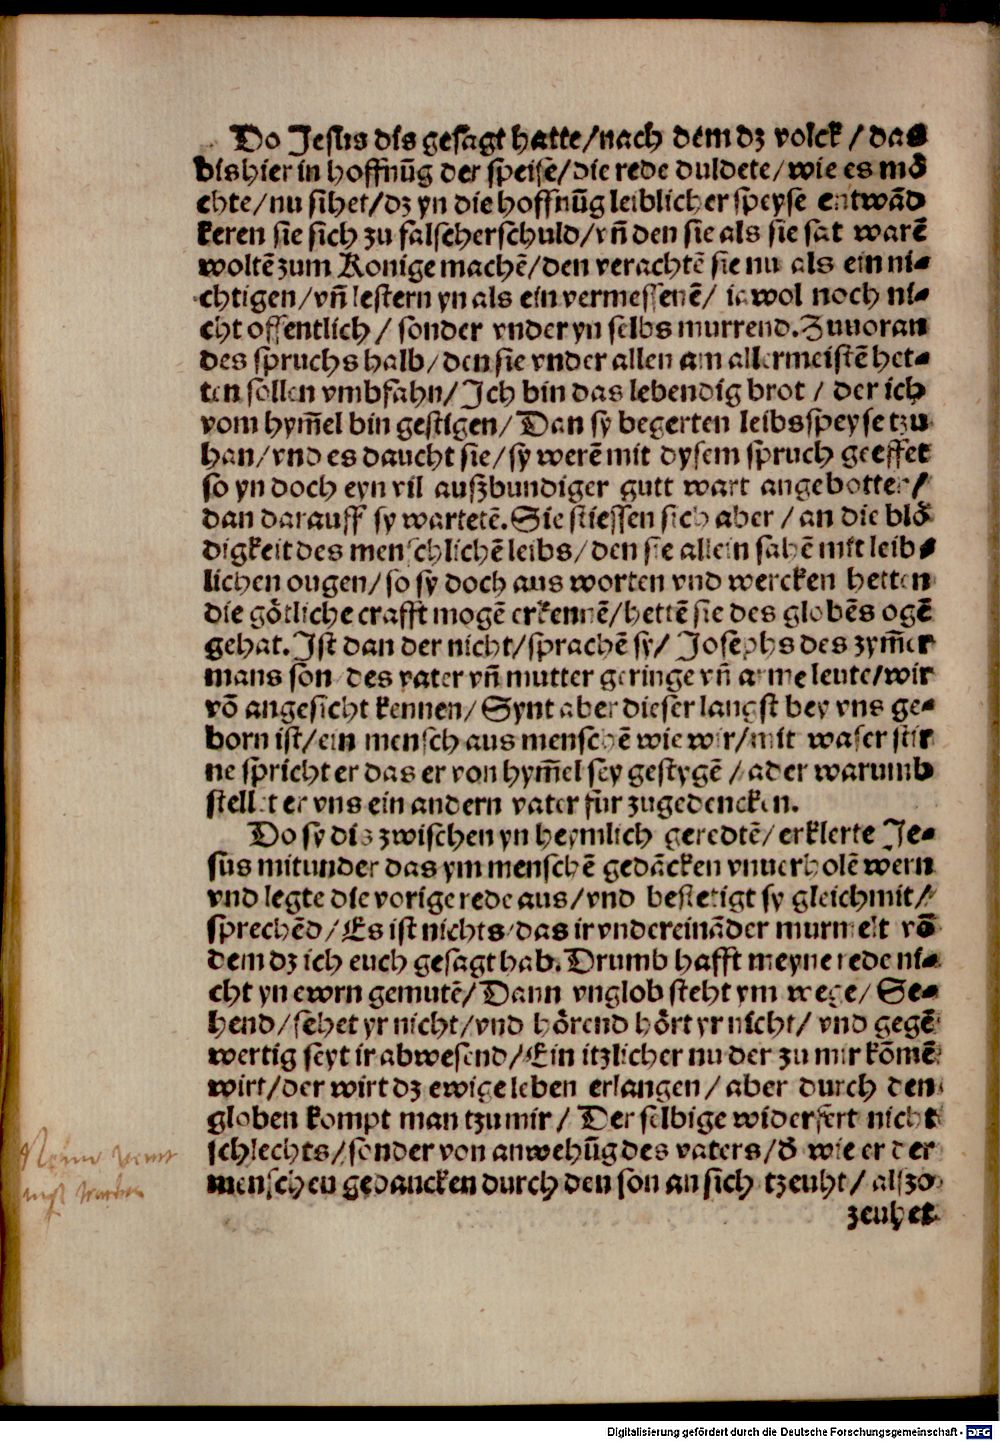 Do Jesus dis gesagt hatte/nach dem dz volck / das
bishier in hoffnūg der speise/die rede duldete/wie es mö
chte/nu sihet/dz yn die hoffnūg leiblicher speyse entwād
keren sie sich zu falscherschuld/vñ den sie als sie sat warē
woltē zum Konige machē/den verachtē sie nu als ein ni⸗
chtigen/vñ lestern yn als ein vermessenē/ ia wol noch ni⸗
cht offentlich / sonder vnder yn selbs murrend. Zuuoran
des spruchs halb/den sie vnder allen am allermeistē het⸗
ten sollen vmbfahn/Ich bin das lebendig brot / der ich
vom hym̄el bin gestigen/Dan sy begerten leibsspeyse tzu
han/vnd es daucht sie/sy werē mit dysem spruch geeffet
so yn doch eyn vil außbundiger gutt wart angebotten/
dan darauff sy wartetē. Sie stiessen sich aber / an die blö
digkeit des menschlichē leibs/den sie allein sahē mit leib⸗
lichen ougen/so sy doch aus worten vnd wercken hetten
die götliche crafft mogē erkennē/hettē sie des globēs ogē
gehat. Ist dan der nicht/sprachē sy/ Josephs des zym̄er
mans son des vater vñ mutter geringe vñ arme leute/wir
vō angesicht kennen/ Synt aber dieser langst bey vns ge⸗
born ist/ein mensch aus menschē wie wir/mit waser stir
ne spricht er das er von hym̄el sey gestygē /ader warumb
stellet er vns ein andern vater für zugedencken.
Do sy dis zwischen yn heymlich geredtē/erklerte Je⸗
sus mitunder das ym menschē gedācken vnuerholē wern
vnd legte die vorige rede aus/vnd bestetigt sy gleichmit/
sprechēd/Es ist nichts/das ir vndereināder murmelt vō
dem dz ich euch gesagt hab. Drumb hafft meyne rede ni⸗
cht yn ewrn gemutē/Dann vnglob steht ym wege/ Se⸗
hend/sehet yr nicht/vnd hörend hört yr nicht/ vnd gegē
wertig seyt ir abwesend/Ein itzlicher nu der zu mir kōmē
wirt/der wirt dz ewige leben erlangen/aber durch den
globen kompt man tzu mir/ Der selbige widerfert nicht
schlechts/sonder von anwehūg des vaters/ð wie er der
menschen gedancken durch den son an sich tzeuht/ alszo
zeuhet
Digitalisierung gefördert durch die Deutsche Forschungsgemeinschaft - DFG